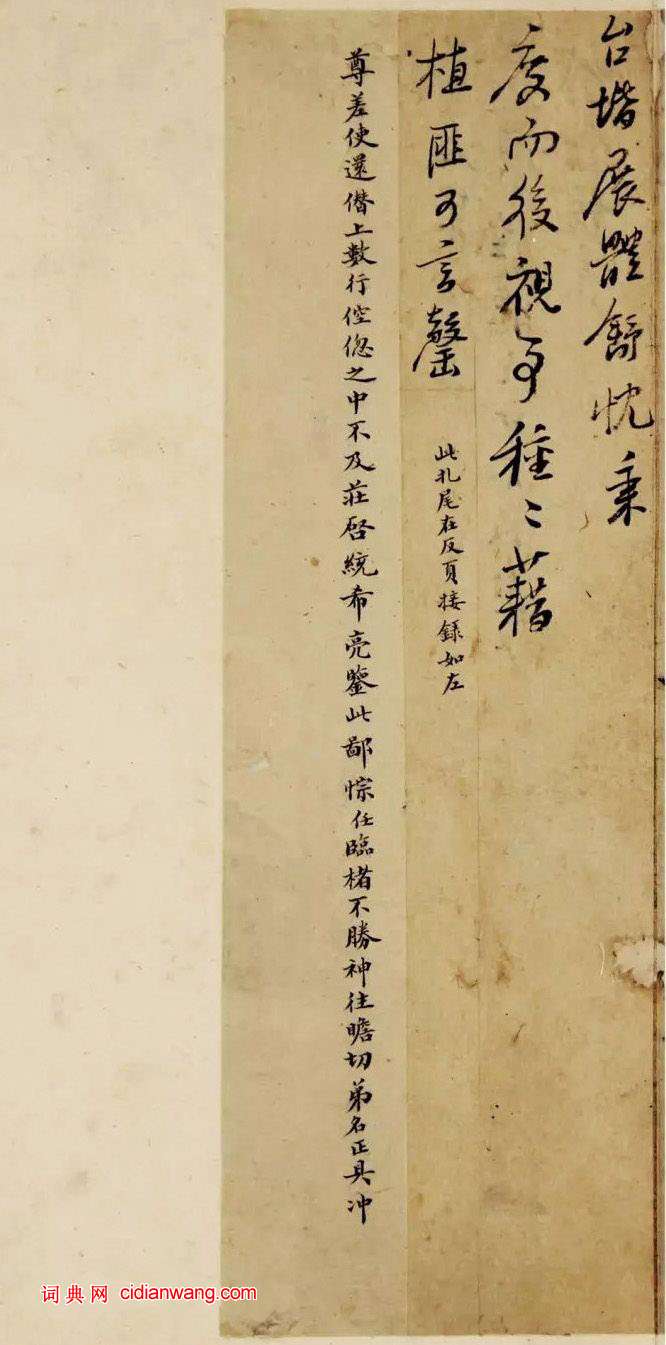 台堦展體舒忱秉
度而後視事種〻藉
植匪可言罄
此札尾在反頁接錄如左
尊差使還僣上數行倥傯之中不及莊啓統希亮鑒此鄙悰任臨楮不勝神往瞻切弟名正具冲
词典网 cidianwang.com